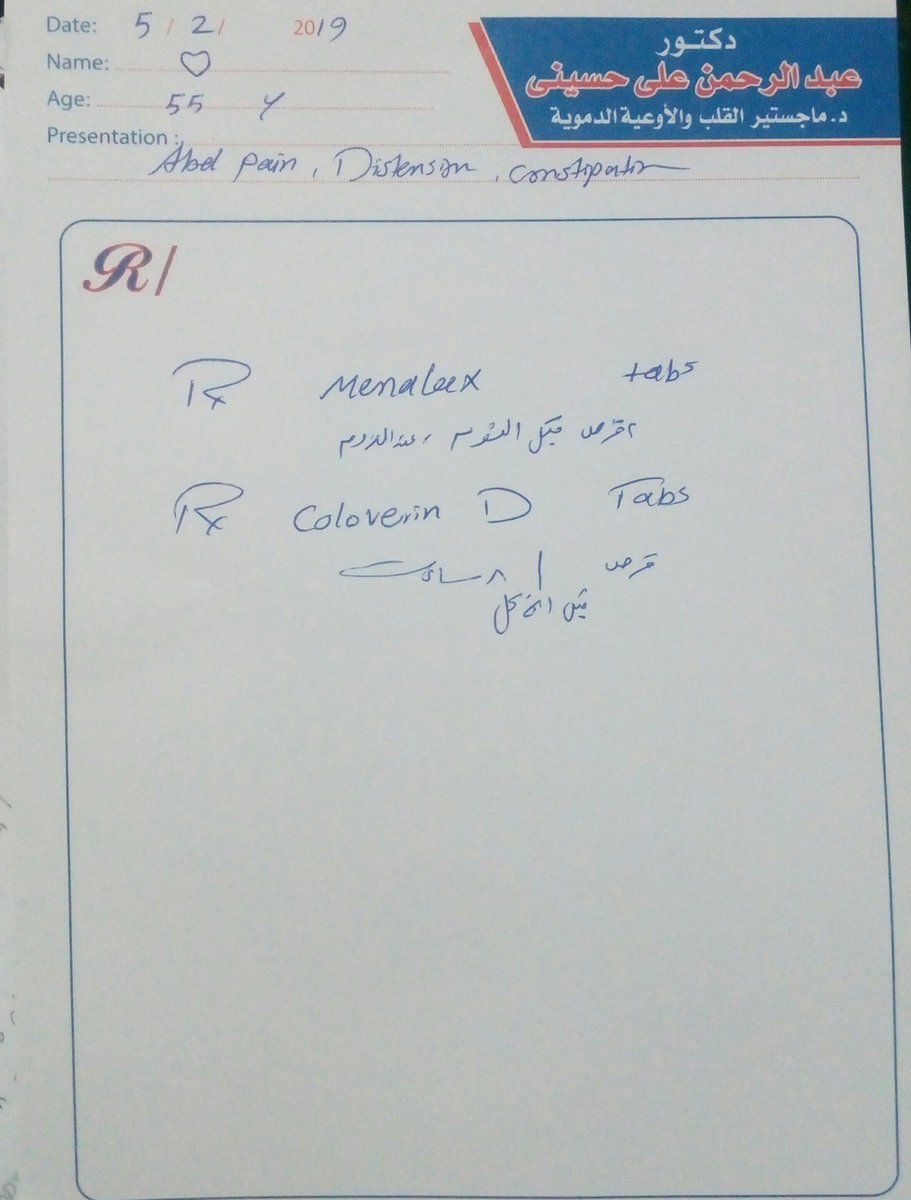 Date: 5 / 2 / 2019
Name: ♡
Age: 55 y
Presentation :
Abd pain, Distension, constipation
دكتور
عبد الرحمن على حسينى
د. ماجستير القلب والأوعية الدموية
R/
Rx Menalax tabs
٢ قرص قبل النوم، عند اللزوم
Rx Coloverin D Tabs
قرص / ٨ ساعات
قبل الأكل